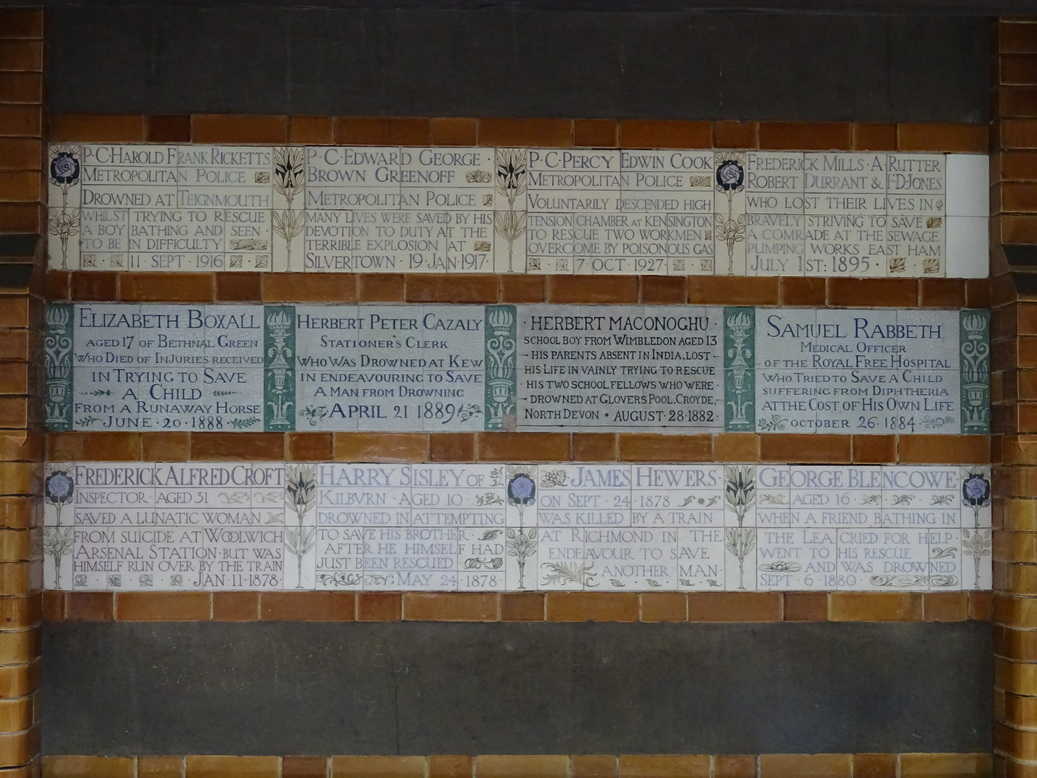 P·C·HAROLD FRANK RICKETTS
METROPOLITAN POLICE
DROWNED AT TEIGNMOUTH
WHILST TRYING TO RESCUE
A BOY BATHING AND SEEN
TO BE IN DIFFICULTY
11 SEPT 1916
P·C·EDWARD GEORGE
BROWN GREENOFF
METROPOLITAN POLICE
MANY LIVES WERE SAVED BY HIS
DEVOTION TO DUTY AT THE
TERRIBLE EXPLOSION AT
SILVERTOWN · 19 JAN 1917
P·C·PERCY EDWIN COOK
METROPOLITAN POLICE
VOLUNTARILY DESCENDED HIGH
TENSION CHAMBER AT KENSINGTON
TO RESCUE TWO WORKMEN
OVERCOME BY POISONOUS GAS
7 OCT 1927
FREDERICK MILLS · A RUTTER
ROBERT DURRANT & F·D·JONES
WHO LOST THEIR LIVES IN
BRAVELY STRIVING TO SAVE
A COMRADE AT THE SEWAGE
PUMPING WORKS EAST HAM
JULY 1ST: 1895
ELIZABETH BOXALL
AGED 17 OF BETHNAL GREEN
WHO DIED OF INJURIES RECEIVED
IN TRYING TO SAVE
A CHILD
FROM A RUNAWAY HORSE
JUNE · 20 · 1888
HERBERT PETER CAZALY
STATIONER'S CLERK
WHO WAS DROWNED AT KEW
IN ENDEAVOURING TO SAVE
A MAN FROM DROWNING
APRIL 21 1889
HERBERT MACONOGHU
SCHOOL BOY FROM WIMBLEDON AGED 13
HIS PARENTS ABSENT IN INDIA, LOST
HIS LIFE IN VAINLY TRYING TO RESCUE
HIS TWO SCHOOL FELLOWS WHO WERE
DROWNED AT GLOVERS POOL, CROYDE,
NORTH DEVON · AUGUST · 28 · 1882
SAMUEL RABBETH
MEDICAL OFFICER
OF THE ROYAL FREE HOSPITAL
WHO TRIED TO SAVE A CHILD
SUFFERING FROM DIPHTHERIA
AT THE COST OF HIS OWN LIFE
OCTOBER 26 · 1884
FREDERICK ALFRED CROFT
INSPECTOR · AGED 31
SAVED A LUNATIC WOMAN
FROM SUICIDE AT WOOLWICH
ARSENAL STATION · BUT WAS
HIMSELF RUN OVER BY THE TRAIN
JAN 11 · 1878
HARRY SISLEY OF
KILBVRN · AGED 10
DROWNED IN ATTEMPTING
TO SAVE HIS BROTHER
AFTER HE HIMSELF HAD
JUST BEEN RESCUED
MAY 24 · 1878
JAMES HEWERS
ON SEPT · 24 1878
WAS KILLED BY A TRAIN
AT RICHMOND IN THE
ENDEAVOUR TO SAVE
ANOTHER MAN
GEORGE BLENCOWE
AGED 16
WHEN A FRIEND BATHING IN
THE LEA CRIED FOR HELP
WENT TO HIS RESCUE
AND WAS DROWNED
SEPT · 6 · 1880